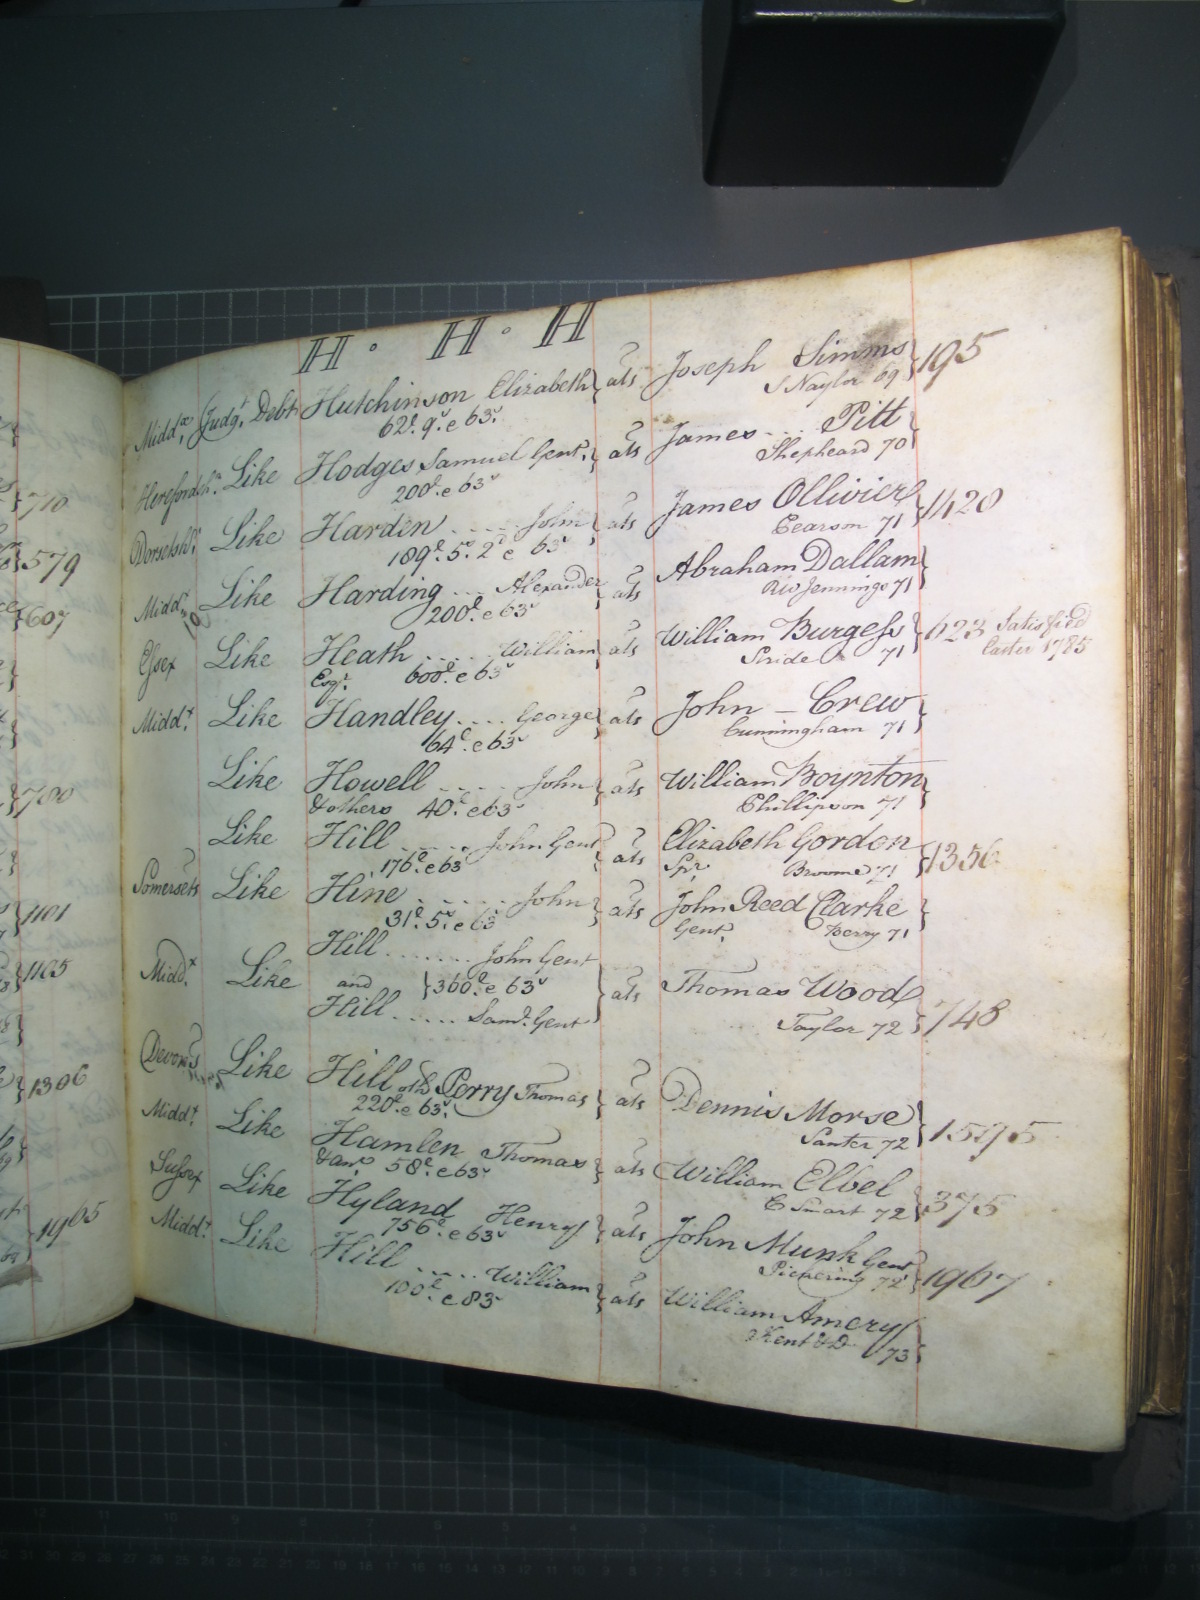 H · H · H
Midd.x Judg.t Debt Hutchinson Elizabeth } ats Joseph Simms } 195
62.l 9.s e 63.s S Naylor 69
Herefordsh.r Like Hodges Samuel Gent. } ats James ... Pitt
200.l e 63.s Shepheard 70
Dorsetsh.r Like Harden .... John } ats James Ollivier } 1420
189.l 5.s 2.d e 63.s Pearson 71
Midd.x Like Harding ... Alexander ats Abraham Dallam }
200.l e 63.s Jennings 71
Essex Like Heath .... William } ats William Burgess } 623 Satisfied
Esq.r 600.l e 63.s Stride 71 Easter 1785
Midd.x Like Handley .... George } ats John – Crew }
64.l e 63.s Cunningham 71
Like Howell .... John } ats William Boynton }
& others 40.l e 63.s Phillipson 71
Like Hill .... John Gent } ats Elizabeth Gordon } 1356
176.l e 63.s Spr. Broome 71
Somersets Like Hine .... John } ats John Reed Clarke }
31.l 5.s e 63.s Gent. Perry 71
Hill ....... John Gent
Midd.x Like and } 360.l e 63.s } ats Thomas Wood
Hill ..... Sam.l Gent Taylor 72 } 748
Devons Like Hill oth.s Perry Thomas } ats Dennis Morse } 1595
220.l e 63.s Santer 72
Midd.x Like Hamlen Thomas } ats William Elbel } 375
& an.r 58.l e 63.s C Smart 72
Sussex Like Hyland Henry } ats John Munk Gent } 1967
756.l e 63.s Pickering 72
Midd.x Like Hill ..... William } ats William Amery }
100.l e 83.s Kent & D 73
710
579
607
780
1101
1105
1306
1965